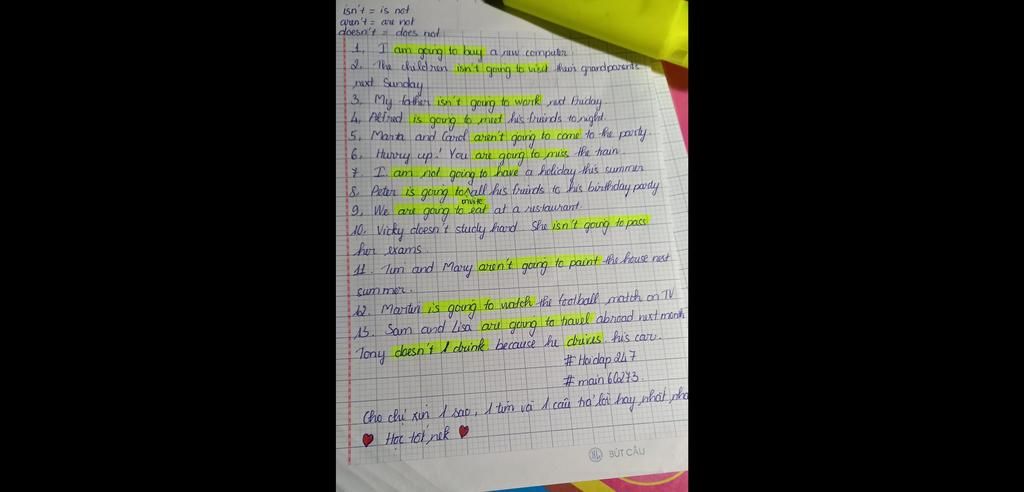 isn't = is not
aren't = are not
doesn't = does not
1, I am going to buy a new computer.
2, The children isn't going to visit their grandparents
next Sunday
3, My father isn't going to work next Friday.
4, Alfred is going to meet his friends to night.
5, Marta and Carol aren't going to come to the party.
6, Hurry up! You are going to miss the train.
7, I am not going to have a holiday this summer
8, Peter is going to all his friends to his birthday party
invite
9, We are going to eat at a restaurant.
10, Vicky doesn't study hard. She isn't going to pass
her exams.
11. Tim and Mary aren't going to paint the house next
summer.
12. Martin is going to watch the football match on TV
13. Sam and Lisa are going to travel abroad next month
Tony doesn't drink because he drives his car.
#Hoidap247
#main60273.
Cho chị xin 1 sao, 1 tim và 1 câu trả lời hay nhất nha
Học tốt nek
BÚT CÂU